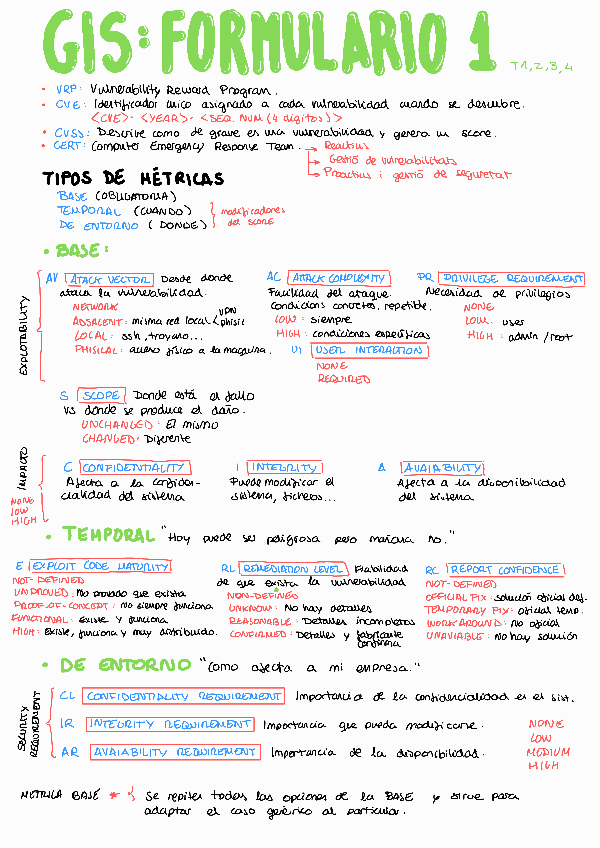 GIS: FORMULARIO 1 T1,2,3,4
• VRP: Vulnerability Reward Program.
• CVE: Identificador único asignado a cada vulnerabilidad cuando se descubre.
<CVE>-<YEAR>-<SEQ. NUM (4 dígitos)>
• CVSS: Describe como de grave es una vulnerabilidad y genera un score.
• CERT: Computer Emergency Response Team. → Reactius
→ Gestió de vulnerabilitats
→ Proactius i gestió de seguretat
TIPOS DE MÉTRICAS
BASE (OBLIGATORIA)
TEMPORAL (CUANDO)
DE ENTORNO (DONDE)
modificadores
del score
• BASE:
EXPLOTABILITY
AV ATACK VECTOR Desde donde
ataca la vulnerabilidad.
NETWORK
ADJACENT: misma red local < VPN
phisic
LOCAL: ssh, troyano...
PHISICAL: acceso físico a la maquina.
AC ATTACK COMPLEXITY
Facilidad del ataque.
Condicions concretas, repetible.
LOW: siempre
HIGH: condiciones específicas
PR PRIVILEGE REQUIREMENT
Necesidad de privilegios
NONE
LOW: user
HIGH: admin / root
UI USER INTERACTION
NONE
REQUIRED
S SCOPE Donde está el fallo
vs donde se produce el daño.
UNCHANGED: El mismo
CHANGED: Diferente
IMPACTO
NONE
LOW
HIGH
C CONFIDENTIALITY
Afecta a la confiden-
cialidad del sistema
I INTEGRITY
Puede modificar el
sistema, ficheros...
A AVAIABILITY
Afecta a la disponibilidad
del sistema
• TEMPORAL "Hoy puede ser peligrosa pero mañana no."
E EXPLOIT CODE MATURITY
NOT-DEFINED
UNPROVED: No probado que exista
PROOF-OF-CONCEPT: no siempre funciona
FUNCTIONAL: existe y funciona
HIGH: Existe, funciona y muy distribuido.
RL REMEDIATION LEVEL Fiabilidad
de que exista la vulnerabilidad
NON-DEFINED
UNKNOW: No hay detalles
REASONABLE: Detalles incompletos
CONFIRMED: Detalles y fabricante
confirma
RC REPORT CONFIDENCE
NOT-DEFINED
OFFICIAL FIX: solución oficial def.
TEMPORARY FIX: oficial temp.
WORKAROUND: No oficial
UNAVIABLE: No hay solución
• DE ENTORNO "Como afecta a mi empresa."
SECURITY
REQUIREMENT
CL CONFIDENTIALITY REQUIREMENT Importancia de la confidencialidad en el sist.
IR INTEGRITY REQUIREMENT Importancia que pueda modificarse.
AR AVAIABILITY REQUIREMENT Importancia de la disponibilidad.
NONE
LOW
MEDIUM
HIGH
METRICA BASE * Se repiten todas las opciones de la BASE y sirve para
adaptar el caso genérico al particular.